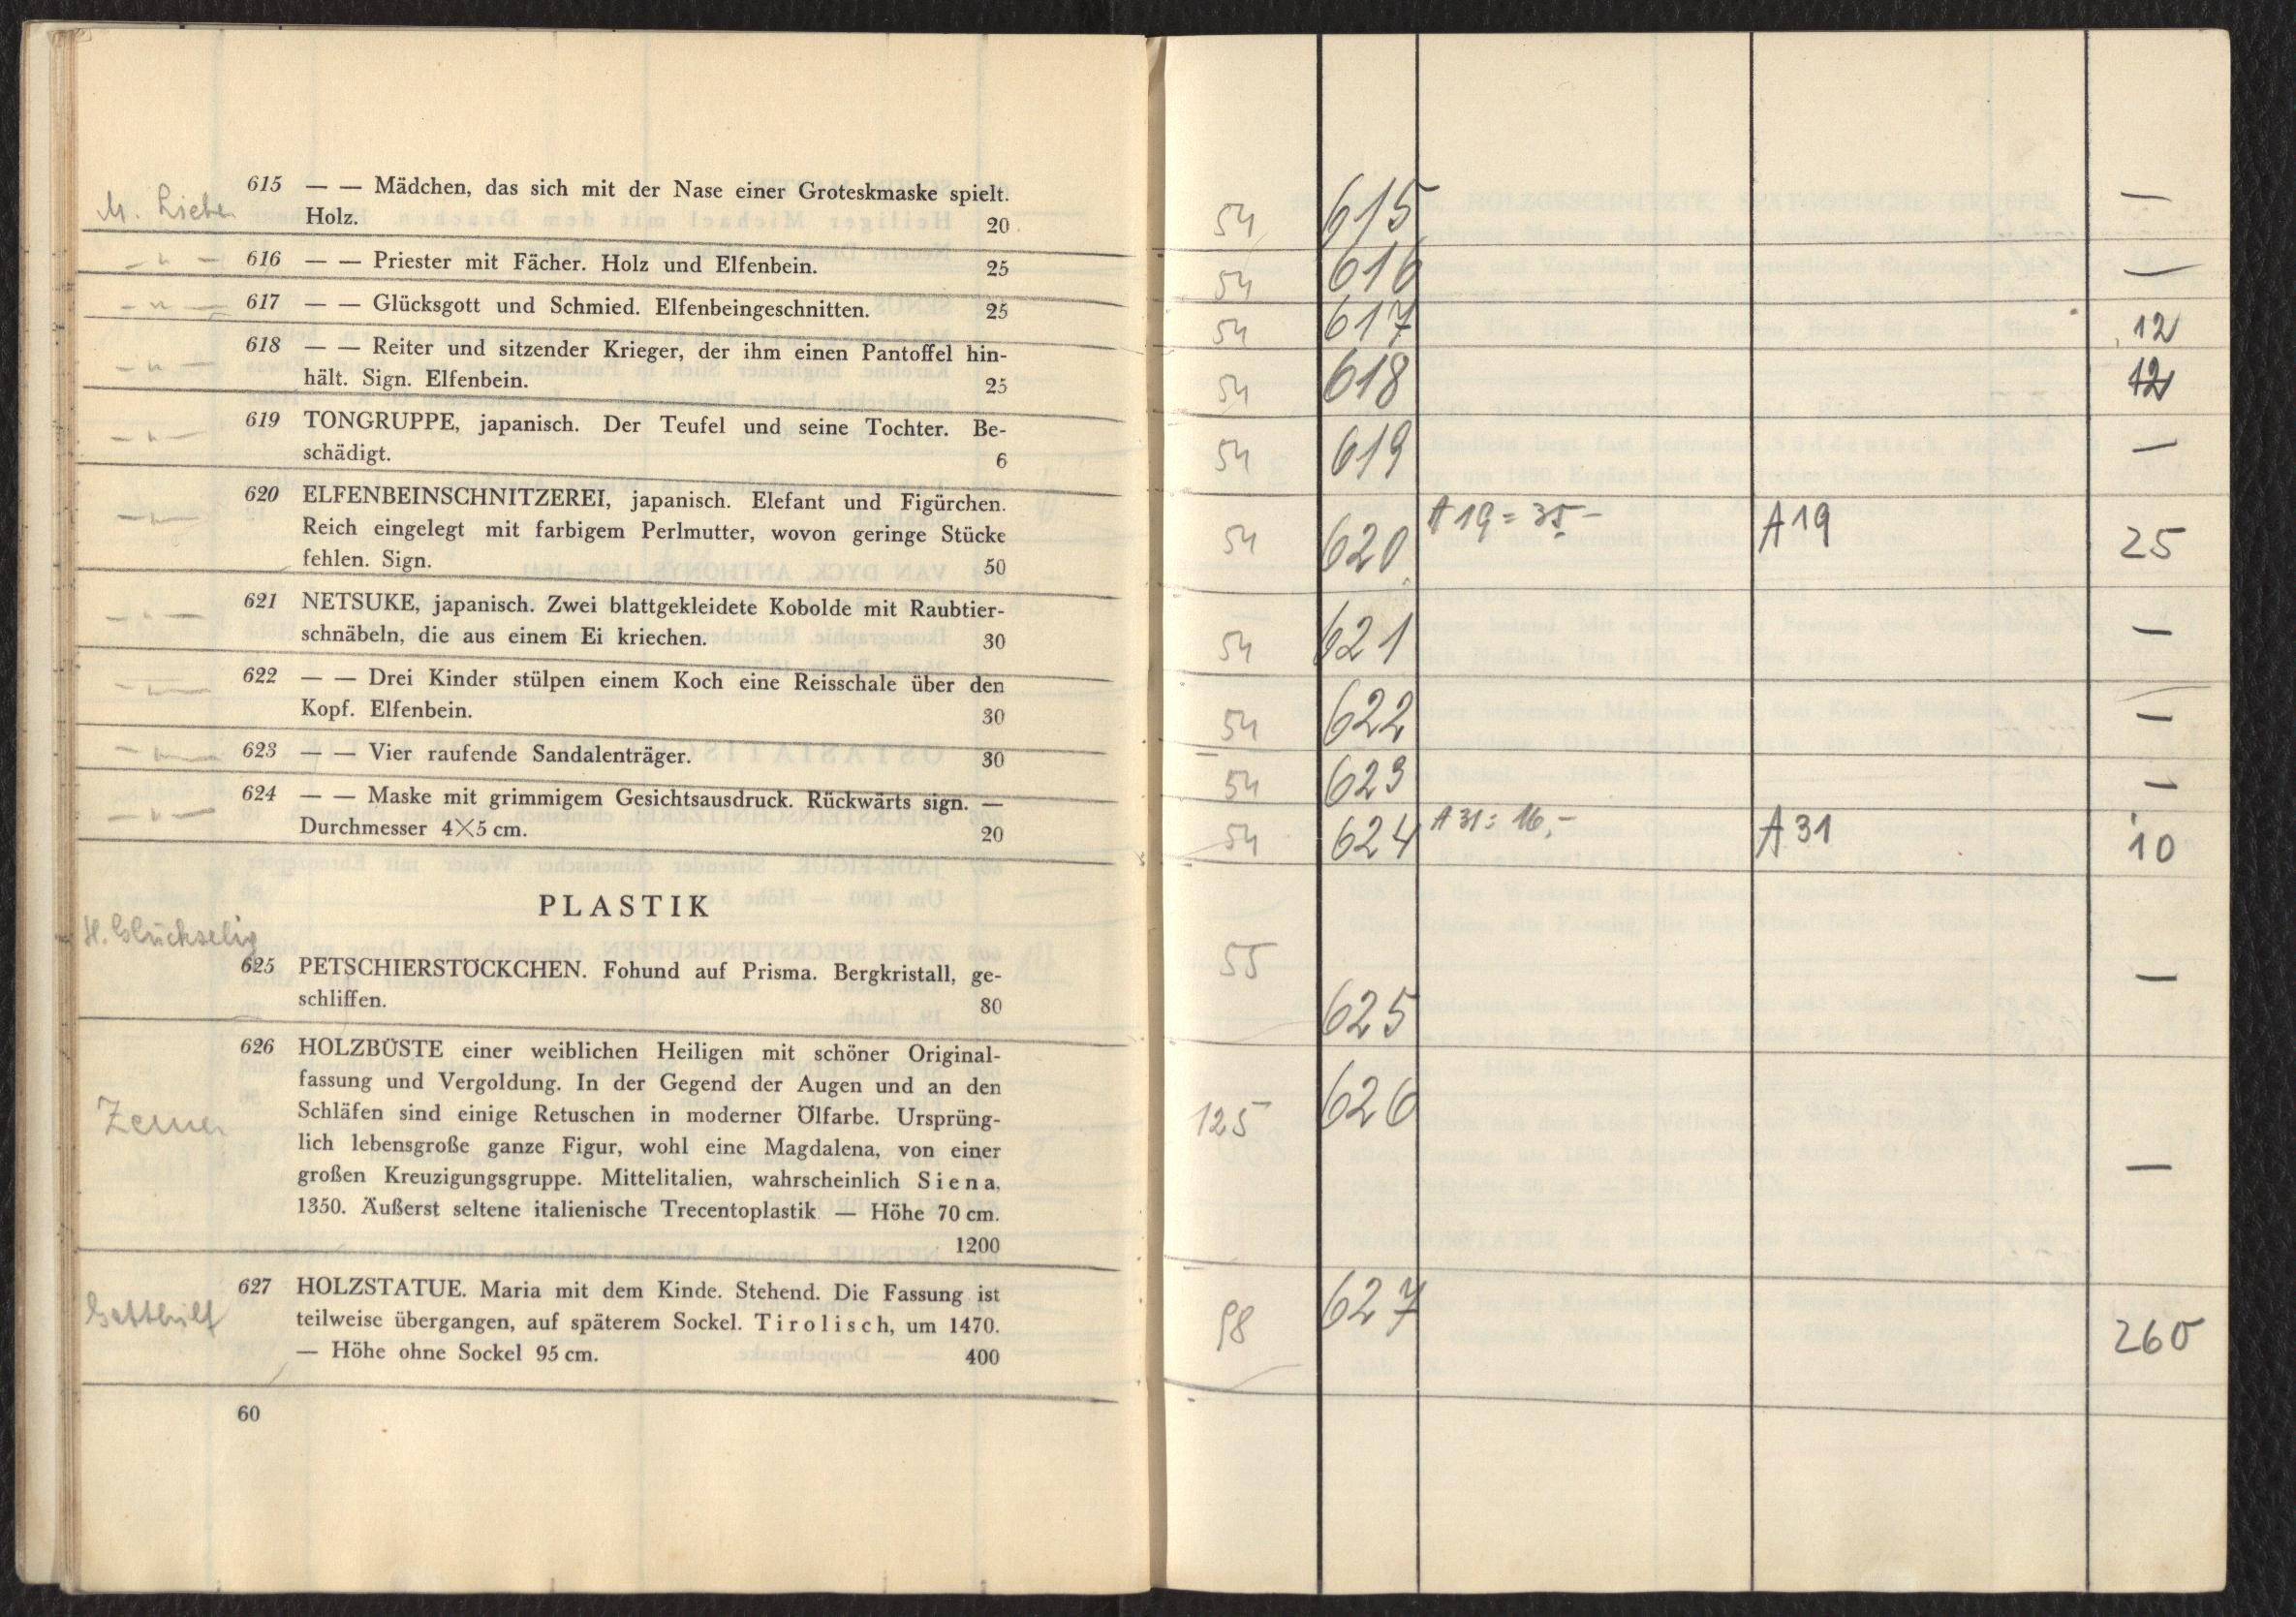 M. Lieben
615 — — Mädchen, das sich mit der Nase einer Groteskmaske spielt.
Holz. 20
— " — 616 — — Priester mit Fächer. Holz und Elfenbein. 25
— " — 617 — — Glücksgott und Schmied. Elfenbeingeschnitten. 25
— " — 618 — — Reiter und sitzender Krieger, der ihm einen Pantoffel hin-
hält. Sign. Elfenbein. 25
— " — 619 TONGRUPPE, japanisch. Der Teufel und seine Tochter. Be-
schädigt. 6
— " — 620 ELFENBEINSCHNITZEREI, japanisch. Elefant und Figürchen.
Reich eingelegt mit farbigem Perlmutter, wovon geringe Stücke
fehlen. Sign. 50
— " — 621 NETSUKE, japanisch. Zwei blattgekleidete Kobolde mit Raubtier-
schnäbeln, die aus einem Ei kriechen. 30
— " — 622 — — Drei Kinder stülpen einem Koch eine Reisschale über den
Kopf. Elfenbein. 30
— " — 623 — — Vier raufende Sandalenträger. 30
— " — 624 — — Maske mit grimmigem Gesichtsausdruck. Rückwärts sign. —
Durchmesser 4×5 cm. 20
PLASTIK
H. Glückselig
625 PETSCHIERSTÖCKCHEN. Fohund auf Prisma. Bergkristall, ge-
schliffen. 80
626 HOLZBÜSTE einer weiblichen Heiligen mit schöner Original-
fassung und Vergoldung. In der Gegend der Augen und an den
Schläfen sind einige Retuschen in moderner Ölfarbe. Ursprüng-
lich lebensgroße ganze Figur, wohl eine Magdalena, von einer
großen Kreuzigungsgruppe. Mittelitalien, wahrscheinlich Siena,
1350. Äußerst seltene italienische Trecentoplastik — Höhe 70 cm.
1200
627 HOLZSTATUE. Maria mit dem Kinde. Stehend. Die Fassung ist
Gotthilf
teilweise übergangen, auf späterem Sockel. Tirolisch, um 1470.
— Höhe ohne Sockel 95 cm. 400
60
54 615 —
54 616 —
54 617 12
54 618 12
54 619 —
54 620 A 19 = 35.- A 19 25
54 621 —
54 622 —
54 623 —
54 624 A 31 = 16,- A 31 10
55 625 —
125 626 —
98 627 260